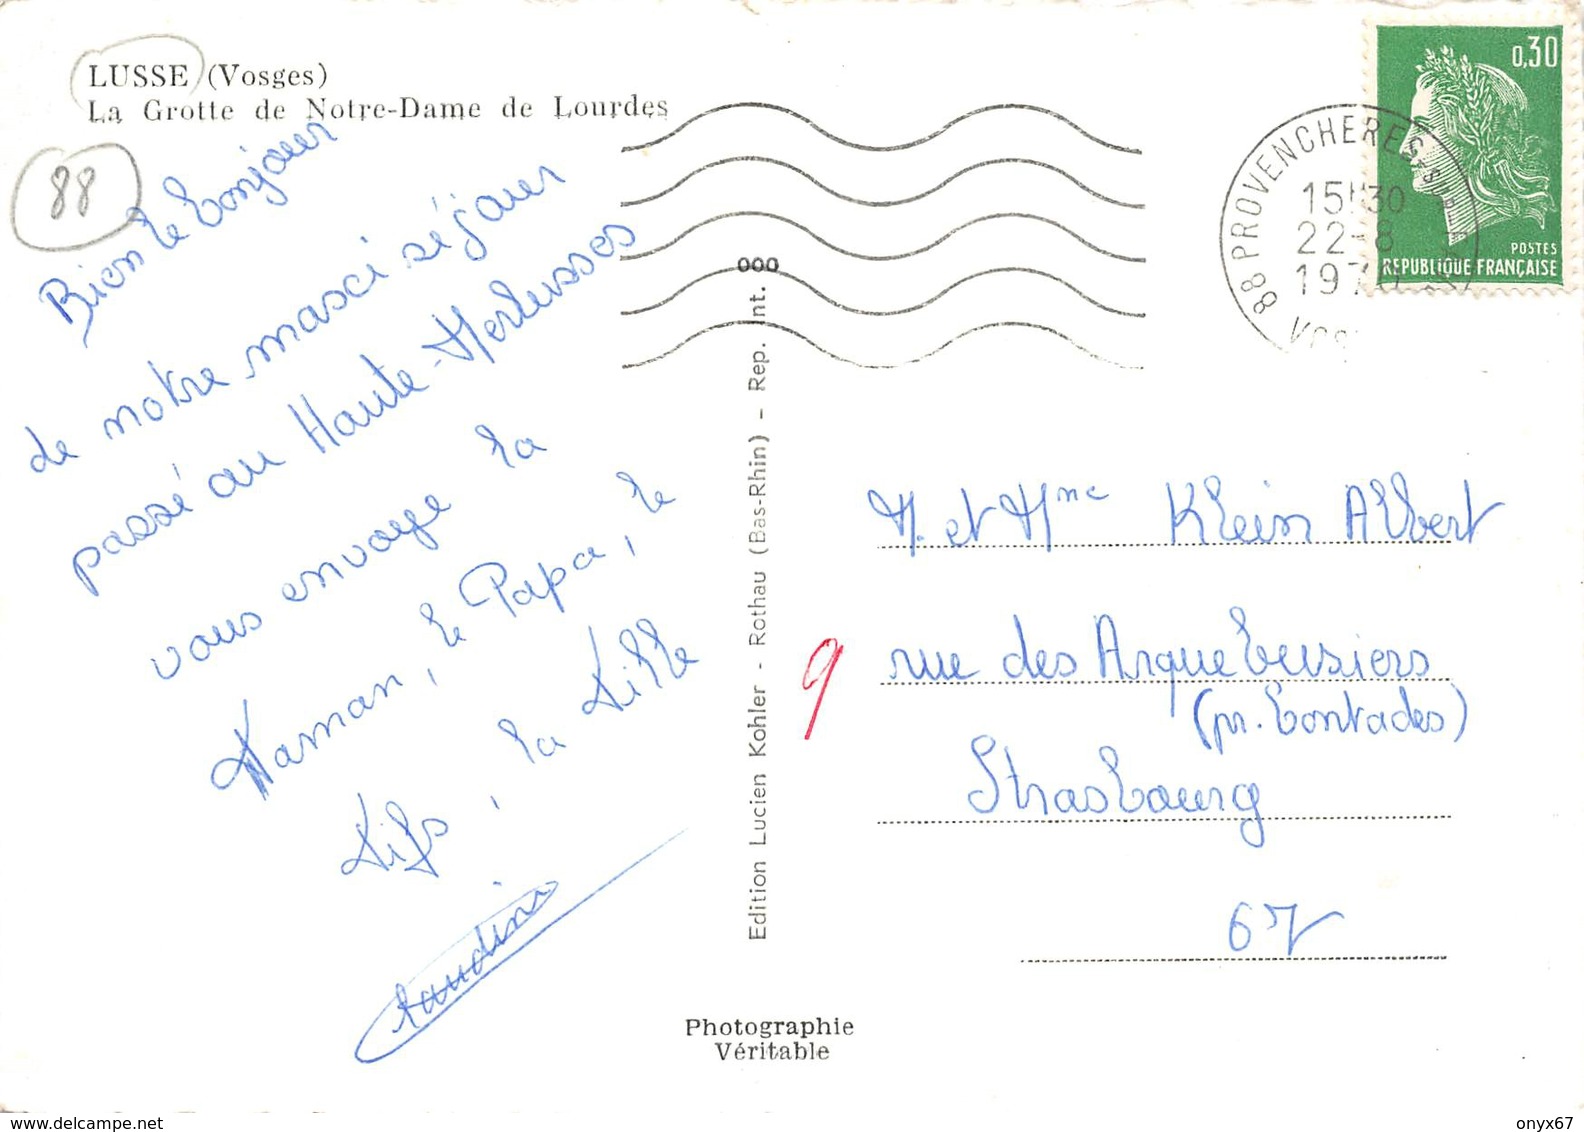 LUSSE (Vosges)
La Grotte de Notre-Dame de Lourdes
88
Bien le bonjour
de notre masci séjour
passé au Haute-Merlusses
vous envoye la
Maman, le Papa, le
Fifs, la Fille
0,30
POSTES
REPUBLIQUE FRANÇAISE
88 PROVENCHERES
15H30
22-8
Edition Lucien Kohler - Rothau (Bas-Rhin) - Rep. Int. 000
M. et Mme Klein Albert
rue des Arquebusiers
(pr. Contades)
Strasbourg
67
9
Photographie
Véritable
onyx67